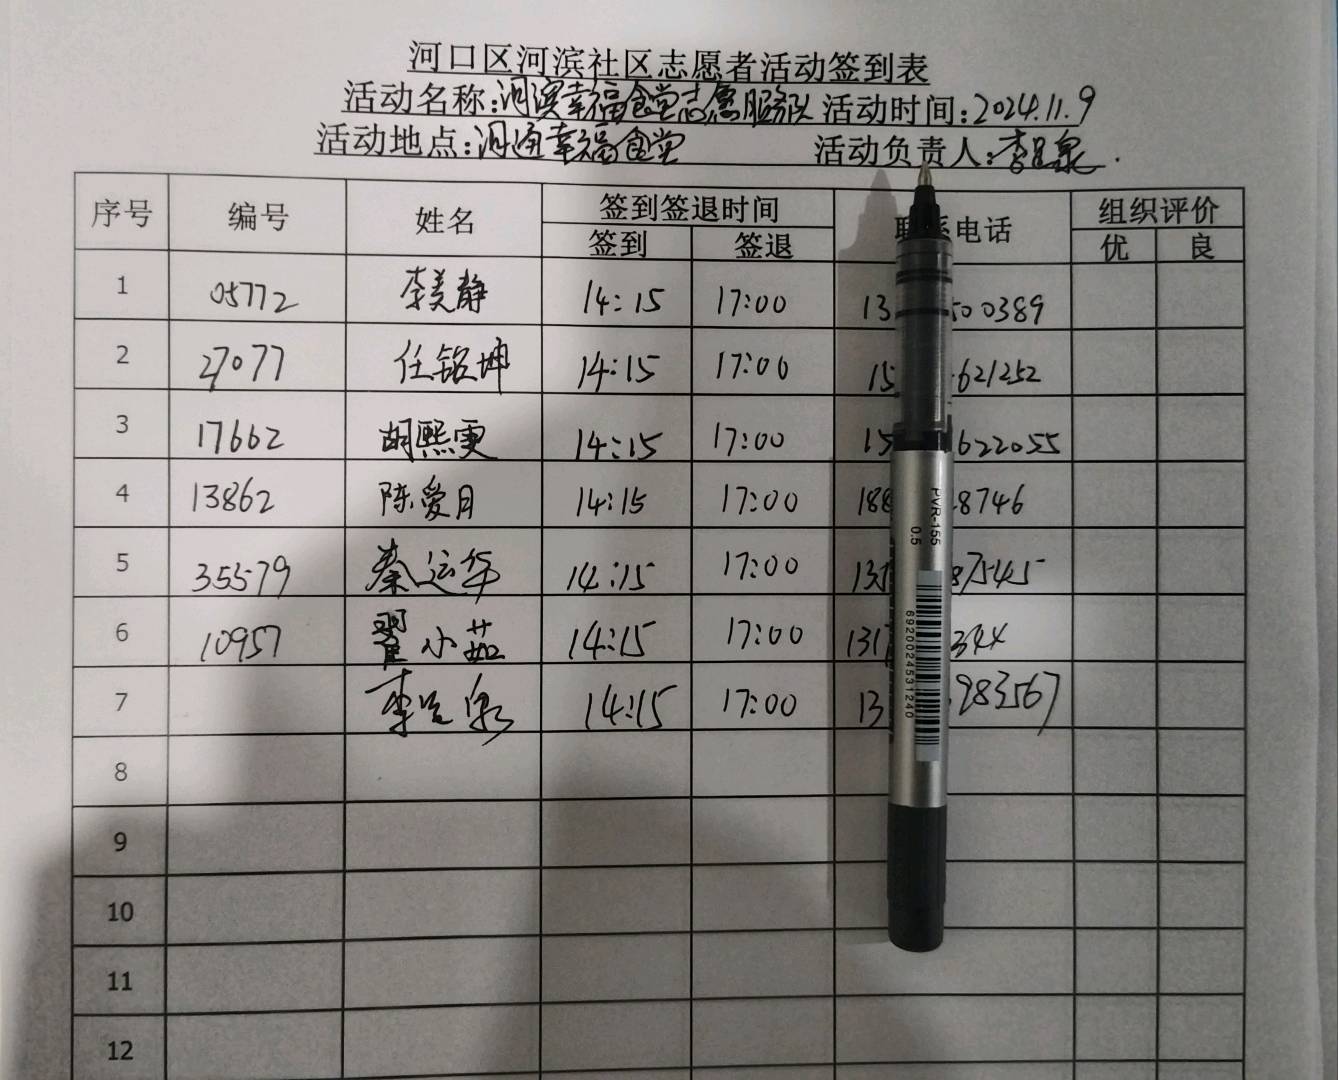 河口区河滨社区志愿者活动签到表
活动名称:河滨幸福食堂志愿服务队 活动时间:2024.11.9
活动地点:河通幸福食堂 活动负责人:李
序号 编号 姓名 签到签退时间 联系电话 组织评价
签到 签退 优 良
1 05772 李美静 14:15 17:00 13 500389
2 27077 任铭坤 14:15 17:00 15 621252
3 17662 胡熙雯 14:15 17:00 15 622055
4 13862 陈爱月 14:15 17:00 188 8746
5 35579 秦运华 14:15 17:00 131 87545
6 10957 翟小茹 14:15 17:00 131 344
7 李 泉 14:15 17:00 13 983567
8
9
10
11
12
PVR-155
0.5
6920024531240